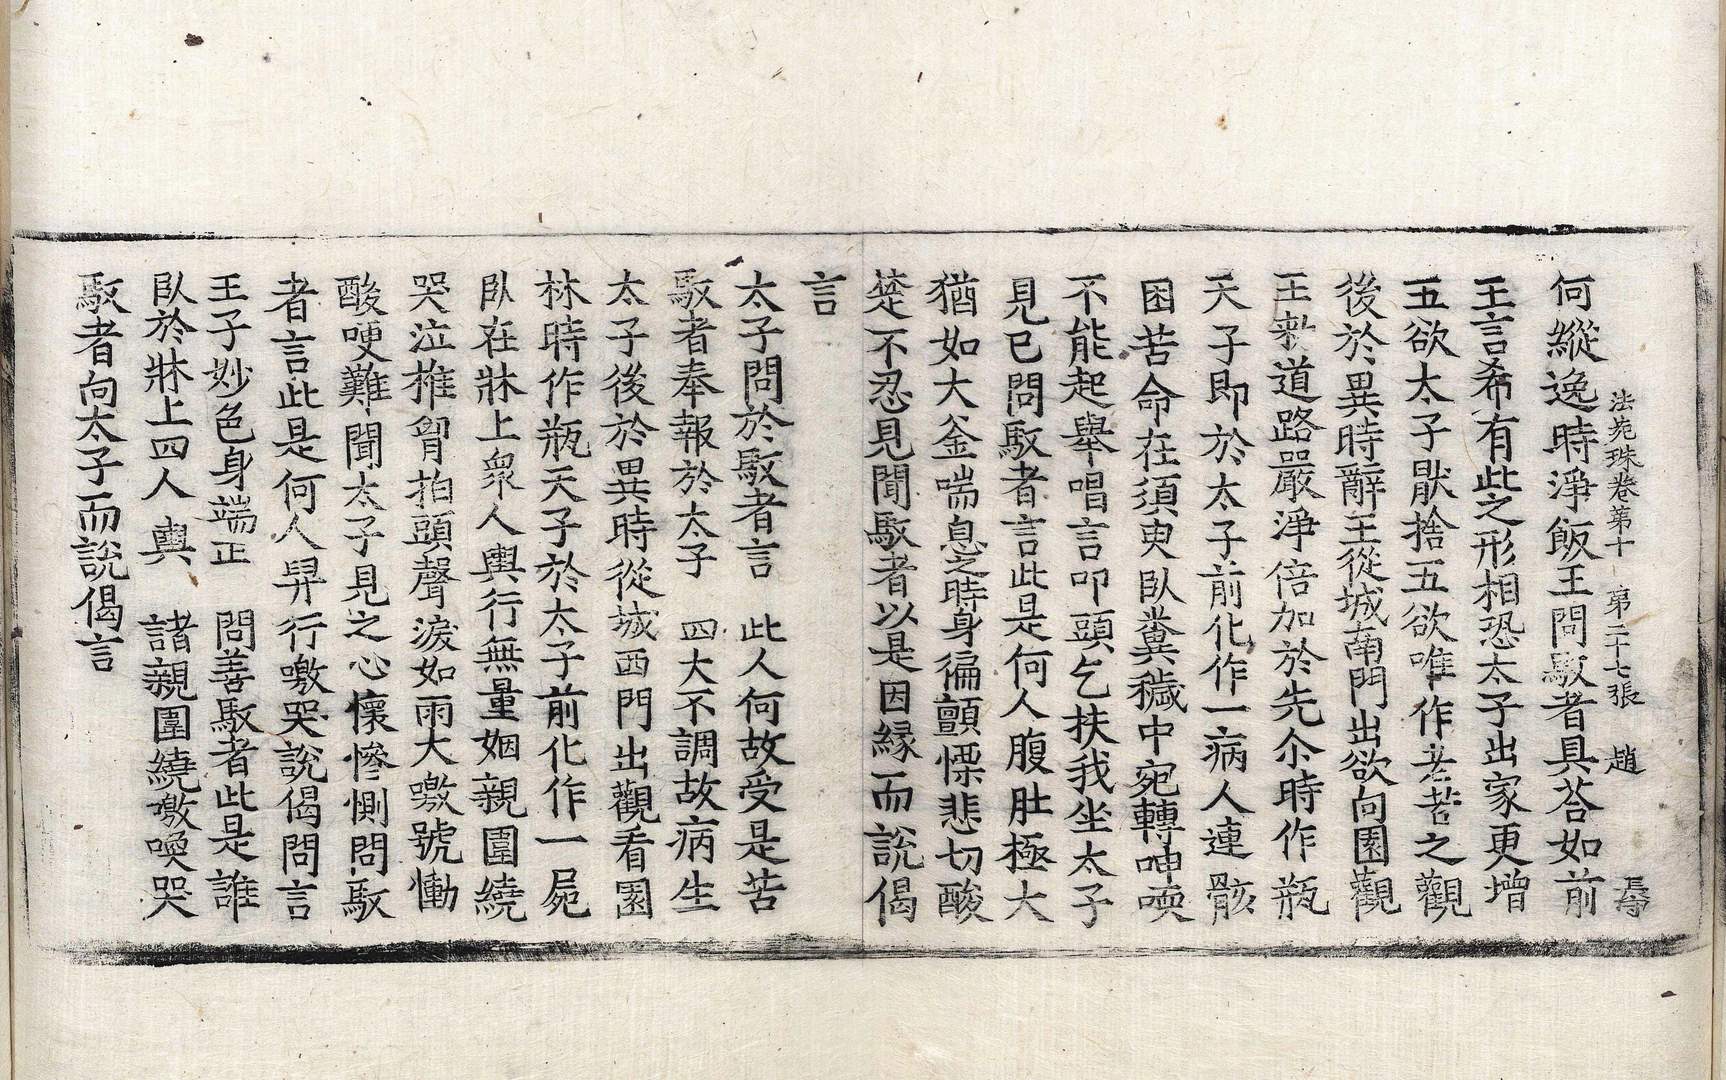 法苑珠卷第十　第二十七張　趙
何縱逸時淨飯王問馭者具荅如前
王言希有此之形相恐太子出家更增
五欲太子猒捨五欲唯作老苦之觀
後於異時辭王從城南門出欲向園觀
王敕道路嚴淨倍加於先尒時作瓶
天子即於太子前化作一病人連骸
困苦命在須臾臥糞穢中宛轉呻喚
不能起舉唱言叩頭乞扶我坐太子
見已問馭者言此是何人腹肚極大
猶如大釜喘息之時身徧顫慄悲切酸
楚不忍見聞馭者以是因緣而說偈
言
太子問於馭者言　此人何故受是苦
馭者奉報於太子　四大不調故病生
太子後於異時從城西門出觀看園
林時作瓶天子於太子前化作一屍
臥在牀上衆人輿行無量姻親圍繞
哭泣搥胷拍頭聲淚如雨大噭號慟
酸哽難聞太子見之心懷慘惻問馭
者言此是何人舁行噭哭說偈問言
王子妙色身端正　問善馭者此是誰
臥於牀上四人輿　諸親圍繞噭喚哭
馭者向太子而說偈言